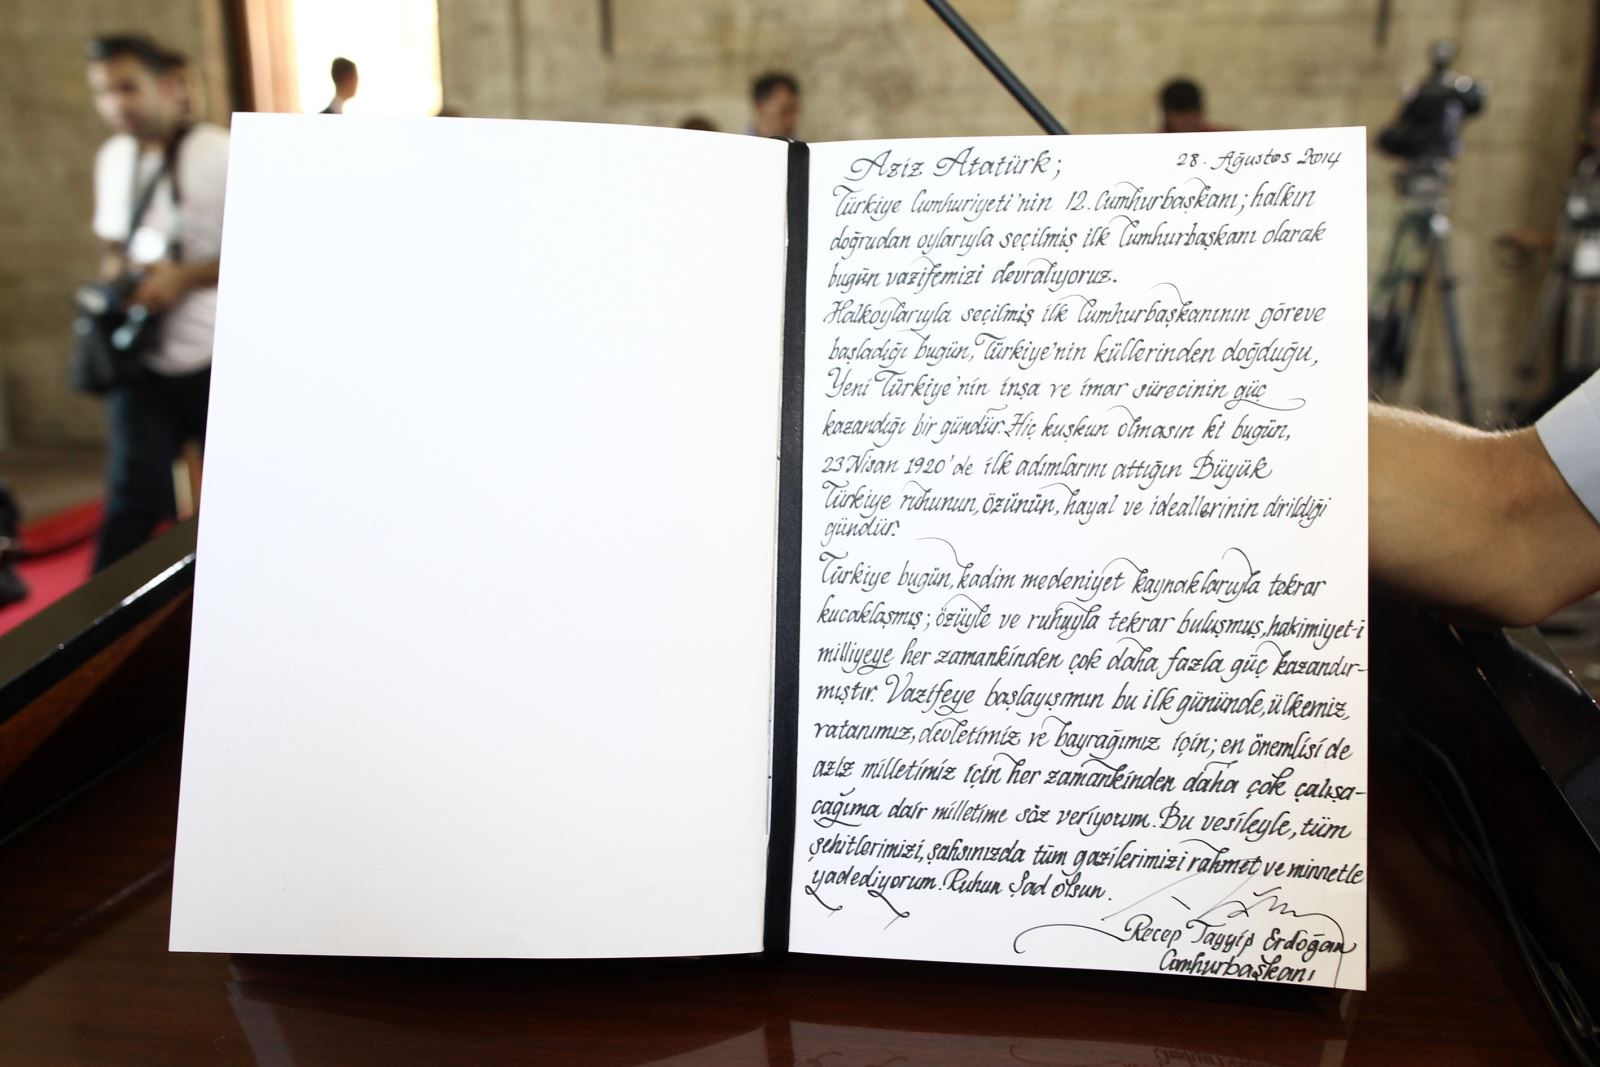 Aziz Atatürk; 28. Ağustos 2014
Türkiye Cumhuriyeti'nin 12. Cumhurbaşkanı; halkın
doğrudan oylarıyla seçilmiş ilk Cumhurbaşkanı olarak
bugün vazifemizi devralıyoruz.
Halkoylarıyla seçilmiş ilk Cumhurbaşkanının göreve
başladığı bugün, Türkiye'nin küllerinden doğduğu,
Yeni Türkiye'nin inşa ve imar sürecinin güç
kazandığı bir gündür. Hiç kuşkun olmasın ki bugün,
23 Nisan 1920'de ilk adımlarını attığın Büyük
Türkiye ruhunun, özünün, hayal ve ideallerinin dirildiği
gündür.
Türkiye bugün, kadim medeniyet kaynaklarıyla tekrar
kucaklaşmış; özüyle ve ruhuyla tekrar buluşmuş, hakimiyet-i
milliyeye her zamankinden çok daha fazla güç kazandır-
mıştır. Vazifeye başlayışımın bu ilk gününde, ülkemiz,
vatanımız, devletimiz ve bayrağımız için; en önemlisi de
aziz milletimiz için her zamankinden daha çok çalışa-
cağıma dair milletime söz veriyorum. Bu vesileyle, tüm
şehitlerimizi, şahsınızda tüm gazilerimizi rahmet ve minnetle
yadediyorum. Ruhun Şad olsun.
Recep Tayyip Erdoğan
Cumhurbaşkanı